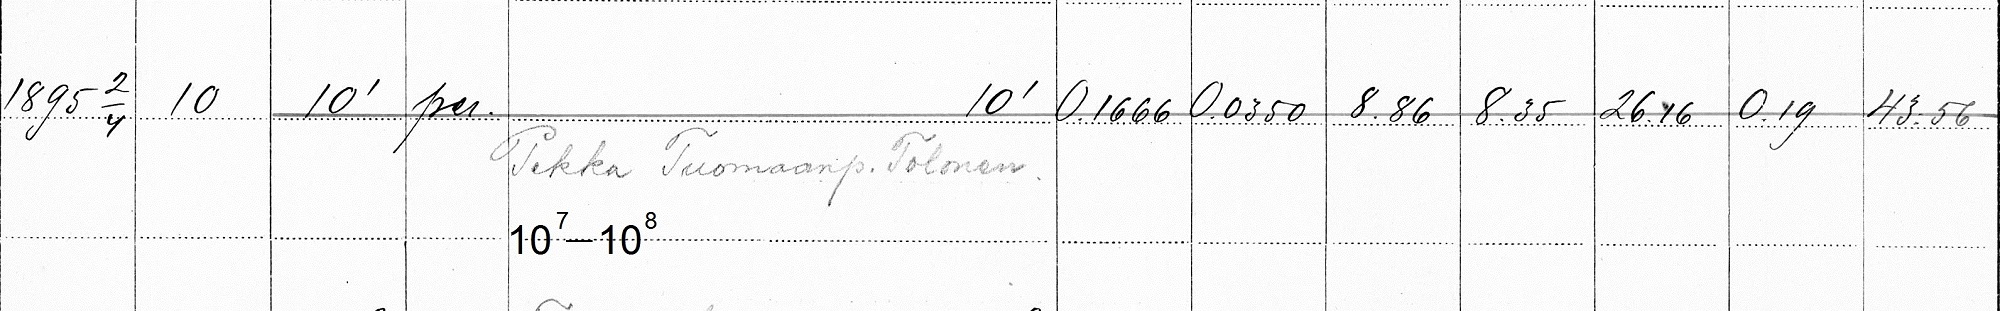 1895 2/4 10 10¹ per. 10¹ 0.1666 0.0350 8.86 8.35 26.16 0.19 43.56
Pekka Tuomaanp. Tolonen.
10⁷—10⁸